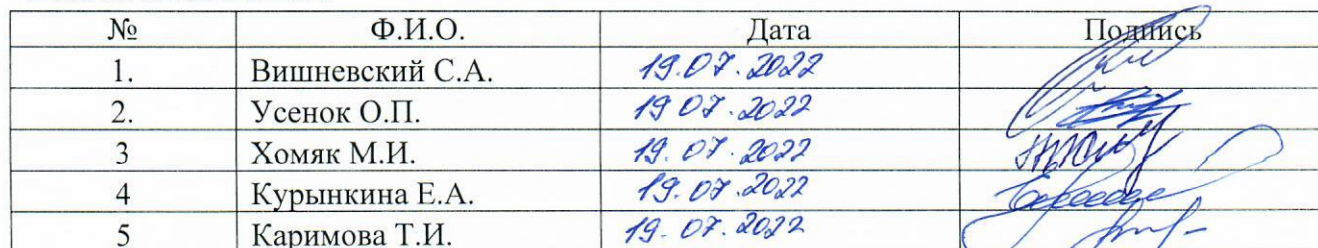 № Ф.И.О. Дата Подпись
1. Вишневский С.А. 19.07.2022
2. Усенок О.П. 19 07.2022
3 Хомяк М.И. 19.07.2022
4 Курынкина Е.А. 19.07.2022
5 Каримова Т.И. 19.07.2022